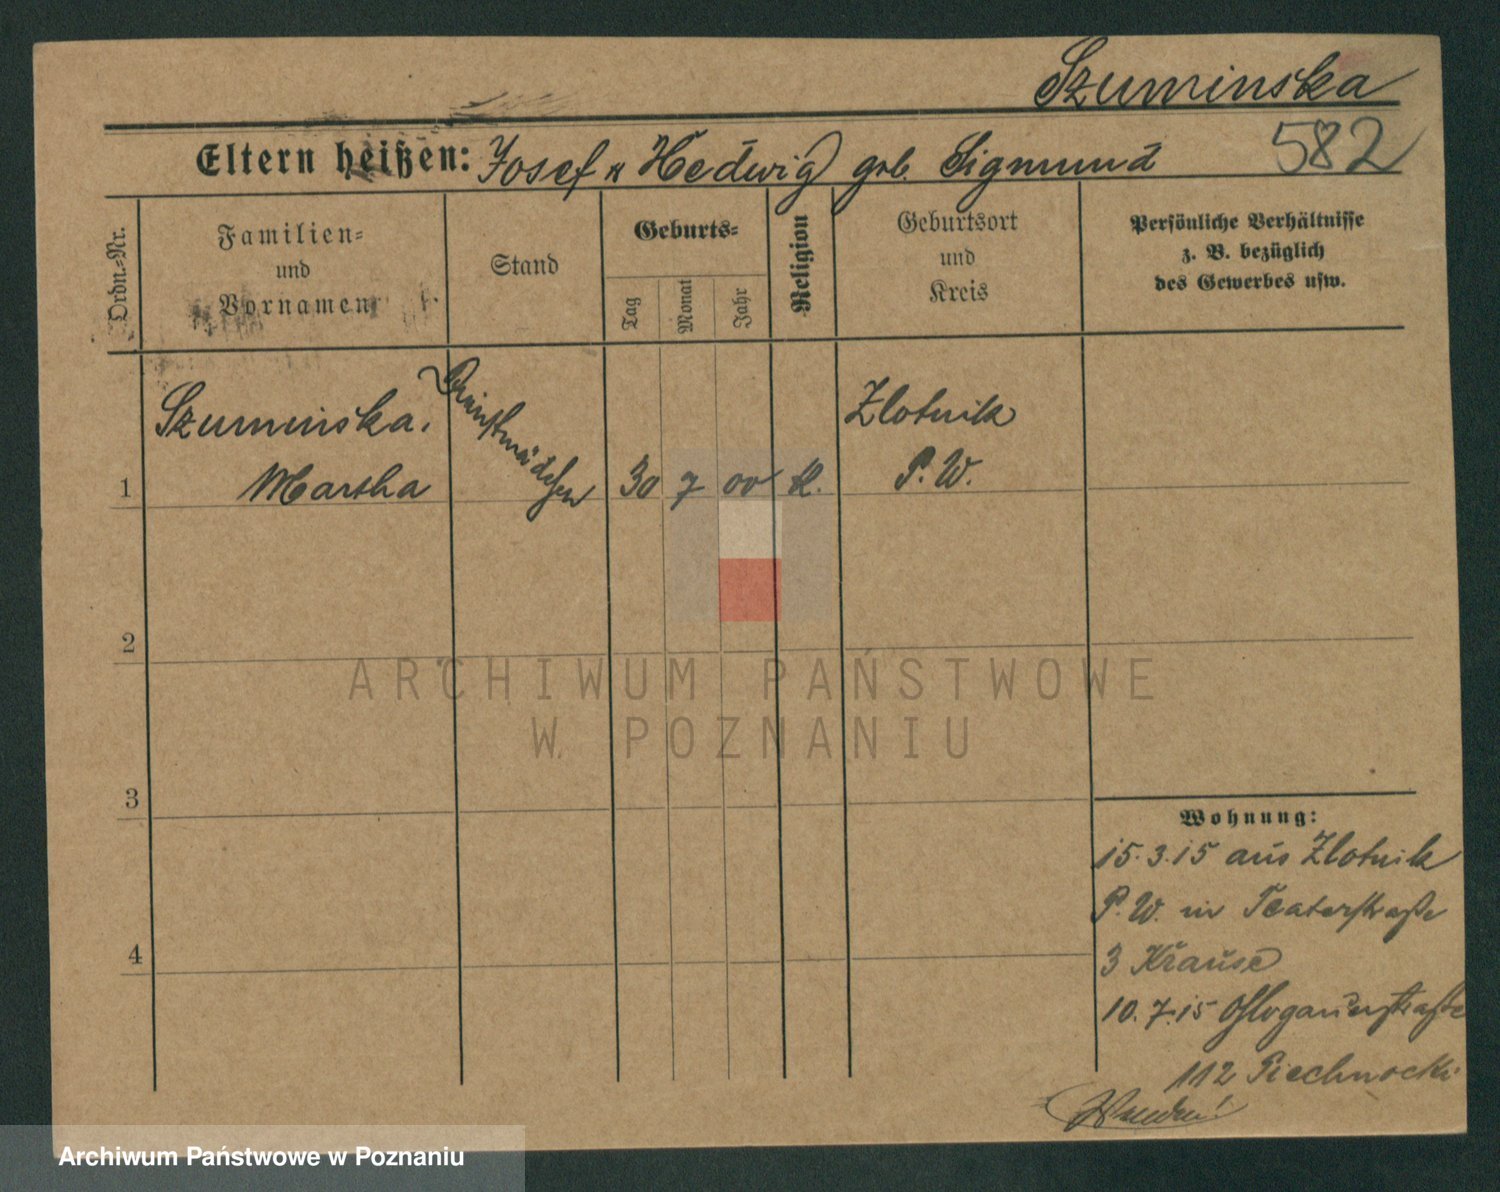 Szuminska
582
Eltern heißen: Josef u Hedwig geb. Sigmund
Ordn.-Nr.
Familien-
und
Vornamen
Stand
Geburts-
Tag
Monat
Jahr
Religion
Geburtsort
und
Kreis
Persönliche Verhältnisse
z. B. bezüglich
des Gewerbes usw.
Szuminska.
Dienstmädchen
Zlotnik
1 Martha 30 7 00 k. P. W.
2
3
4
ARCHIWUM PAŃSTWOWE
W POZNANIU
Wohnung:
15.3.15 aus Zlotnik
P. W. in Teaterstraße
3 Krause
10.7.15 Glogauerstraße
112 Piechnocki
Archiwum Państwowe w Poznaniu